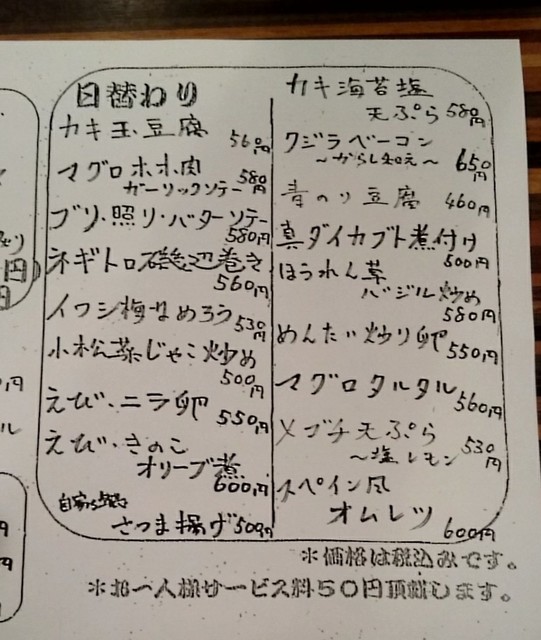 日替わり
カキ玉豆腐
560円
マグロホホ肉
ガーリックソテー 580円
ブリ・照リ・バターソテー
580円
ネギトロ磯辺巻き
560円
イワシ梅なめろう 530円
小松菜じゃこ炒め
500円
えび・ニラ卵 550円
えび・きのこ
オリーブ煮
600円
さつま揚げ 500円
カキ海苔塩
天ぷら 580円
クジラベーコン
〜からし和え〜 650円
青のり豆腐 460円
真ダイカブト煮付け
500円
ほうれん草
バジル炒め
580円
めんたい炒り卵 550円
マグロタルタル 560円
メゴチ天ぷら 530円
〜塩レモン
スペイン風
オムレツ 600円
＊価格は税込みです。
＊お一人様サービス料50円頂戴します。